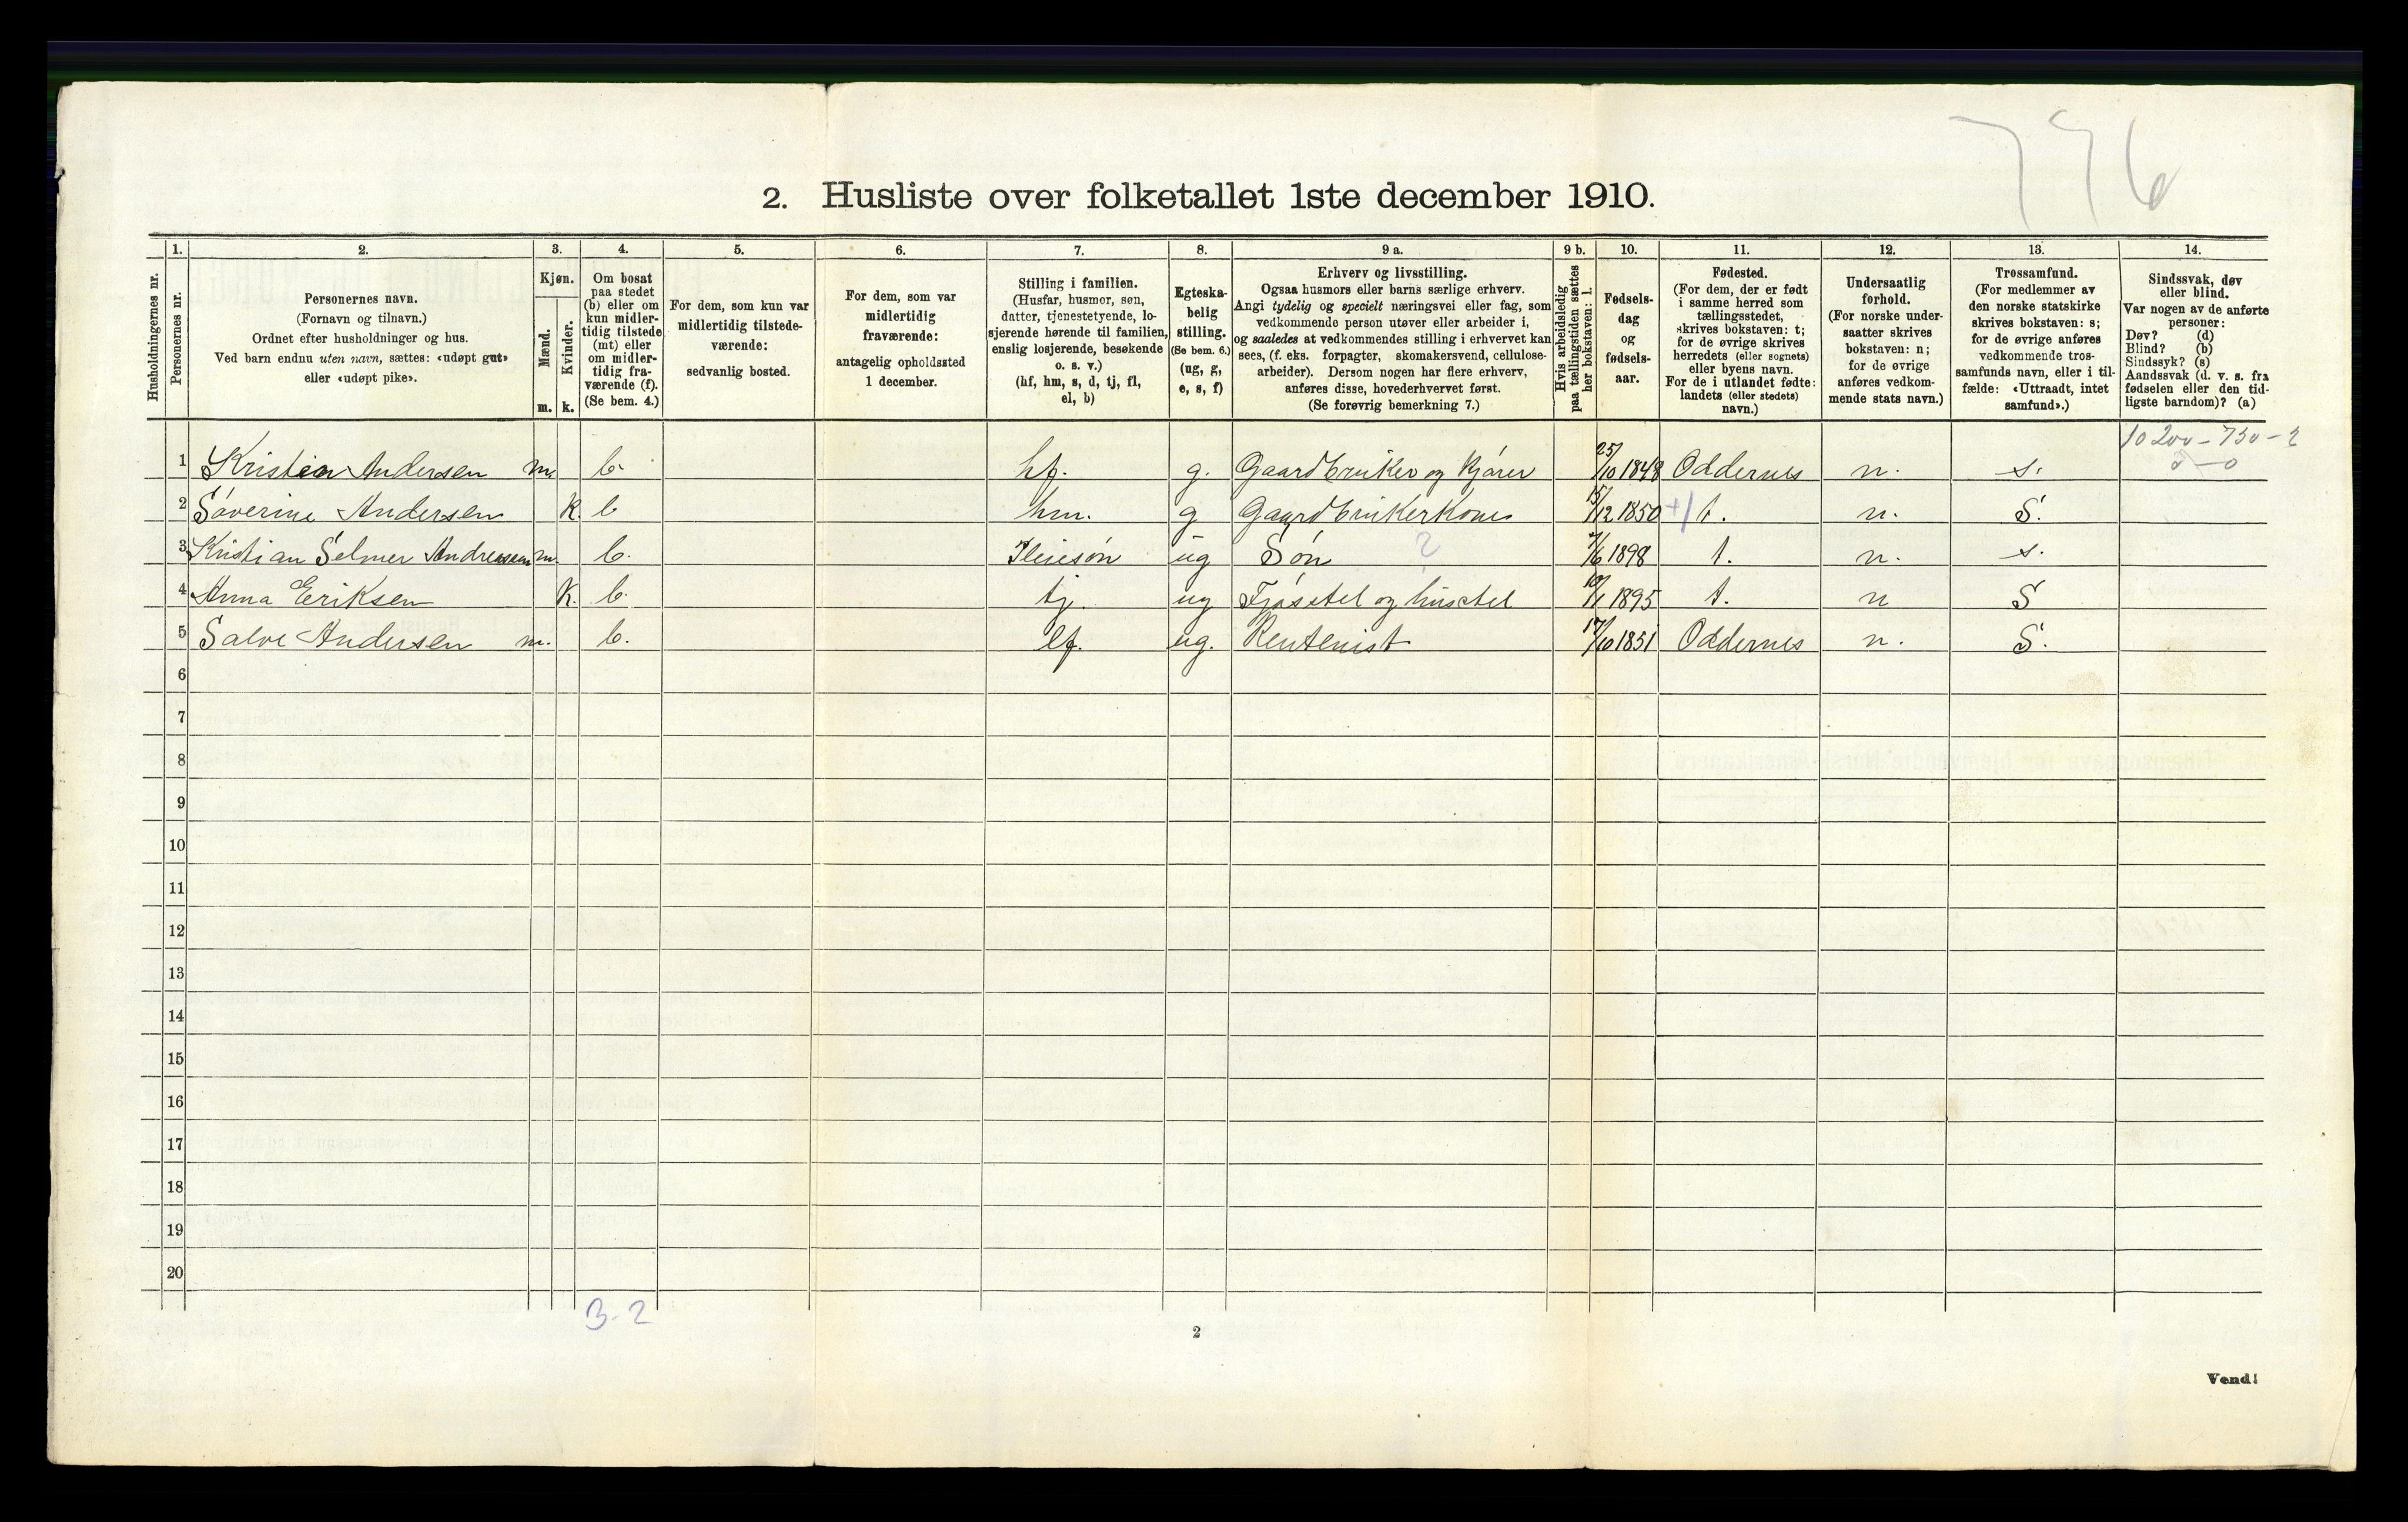 776
2. Husliste over folketallet 1ste december 1910.
Husholdningernes nr.
1.
Personernes nr.
2.
Personernes navn.
(Fornavn og tilnavn.)
Ordnet efter husholdninger og hus.
Ved barn endnu uten navn, sættes: «udøpt gut»
eller «udøpt pike».
3.
Kjøn.
Mænd.
Kvinder.
m.
k.
4.
Om bosat
paa stedet
(b) eller om
kun midler-
tidig tilstede
(mt) eller
om midler-
tidig fra-
værende (f).
(Se bem. 4.)
5.
For dem, som kun var
midlertidig tilstede-
værende:
sedvanlig bosted.
6.
For dem, som var
midlertidig
fraværende:
antagelig opholdssted
1 december.
7.
Stilling i familien.
(Husfar, husmor, søn,
datter, tjenestetyende, lo-
sjerende hørende til familien,
enslig losjerende, besøkende
o. s. v.)
(hf, hm, s, d, tj, fl,
el, b)
8.
Egteska-
belig
stilling.
(Se bem. 6.)
(ug, g,
e, s, f)
9 a.
Erhverv og livsstilling.
Ogsaa husmors eller barns særlige erhverv.
Angi tydelig og specielt næringsvei eller fag, som
vedkommende person utøver eller arbeider i,
og saaledes at vedkommendes stilling i erhvervet kan
sees, (f. eks. forpagter, skomakersvend, cellulose-
arbeider). Dersom nogen har flere erhverv,
anføres disse, hovederhvervet først.
(Se forøvrig bemerkning 7.)
9 b.
Hvis arbeidsledig
paa tællingstiden sættes
her bokstaven: l.
10.
Fødsels-
dag
og
fødsels-
aar.
11.
Fødested.
(For dem, der er født
i samme herred som
tællingsstedet,
skrives bokstaven: t;
for de øvrige skrives
herredets (eller sognets)
eller byens navn.
For de i utlandet fødte:
landets (eller stedets)
navn.)
12.
Undersaatlig
forhold.
(For norske under-
saatter skrives
bokstaven: n;
for de øvrige
anføres vedkom-
mende stats navn.)
13.
Trossamfund.
(For medlemmer av
den norske statskirke
skrives bokstaven: s;
for de øvrige anføres
vedkommende tros-
samfunds navn, eller i til-
fælde: «Uttraadt, intet
samfund».)
14.
Sindssvak, døv
eller blind.
Var nogen av de anførte
personer:
Døv? (d)
Blind? (b)
Sindssyk? (s)
Aandssvak (d. v. s. fra
fødselen eller den tid-
ligste barndom)? (a)
10200-730-2
1 Kristian Andersen m. b. hf. g. Gaardbruker og Kjører 25/10 1848 Oddernes n. s.
2 Saverine Andersen K. b hm. g Gaardbrukerkone 15/12 1850 t. n. S.
3 Kristian Selmer Andreassen m. b. Pleiesøn ug Søn ? 7/6 1898 t. n. s.
4 Anna Eriksen K. b. tj. ug Fjøsstel og husstel 10/1 1895 t. n S
5 Salve Andersen m. b. ef. ug. Rentenist 17/10 1851 Oddernes n. S.
6
7
8
9
10
11
12
13
14
15
16
17
18
19
20
3-2
2
Vend!